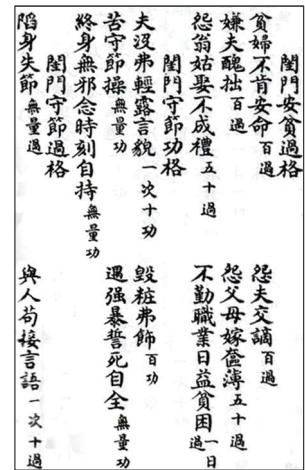 閨門安貧過格
貧婦不肯安命百過 怨夫交謫百過
嫌夫醜拙百過 怨父母嫁奩薄五十過
怨翁姑娶不成禮五十過 不勤職業日益貧困一日過
閨門守節功格
夫沒弗輕露言貌一次十功 毀粧弗飾百功
苦守節操無量功 遇强暴誓死自全無量功
終身無邪念時刻自持無量功
閨門守節過格
陷身失節無量過 與人苟接言語一次十過